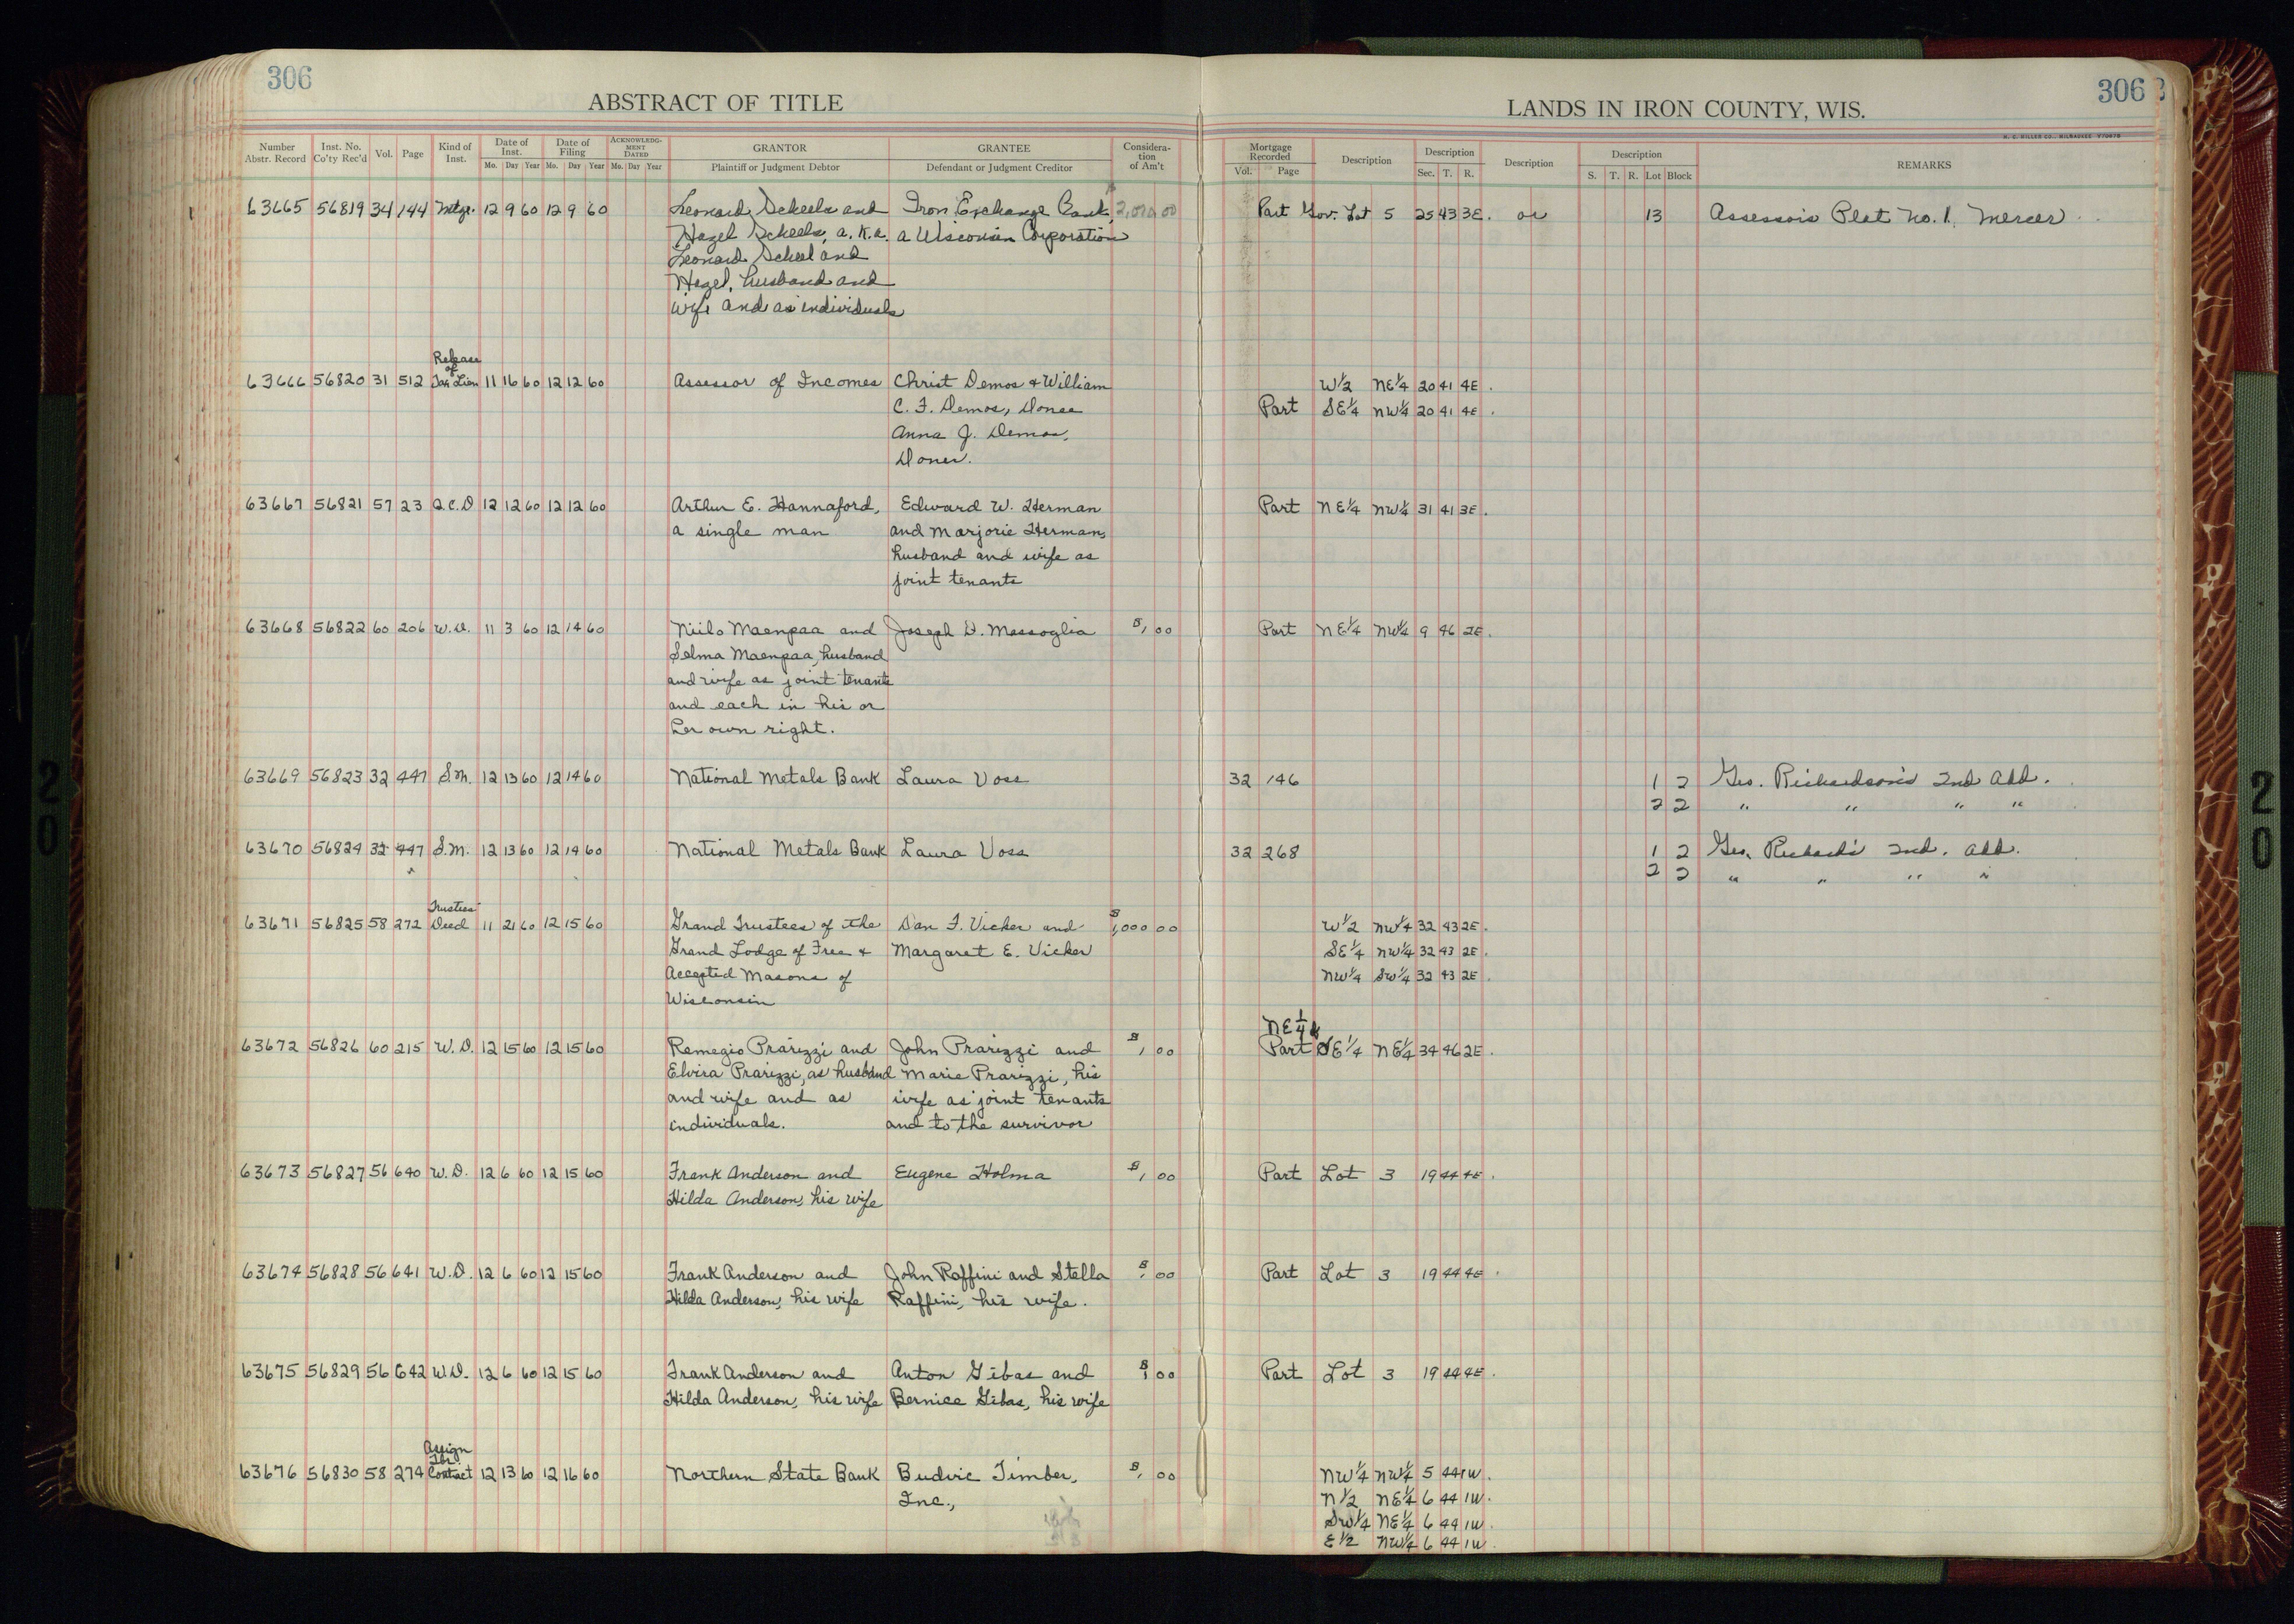 306
ABSTRACT OF TITLE
LANDS IN IRON COUNTY, WIS.
306
H. C. MILLER CO., MILWAUKEE
Number Abstr. Record Inst. No. Co'ty Rec'd Vol. Page Kind of Inst. Date of Inst. Mo. Day Year Date of Filing Mo. Day Year ACKNOWLEDGMENT DATED Mo. Day Year GRANTOR Plaintiff or Judgment Debtor GRANTEE Defendant or Judgment Creditor Consideration of Am't Mortgage Recorded Vol. Page Description Description Sec. T. R. Description Description S. T. R. Lot Block REMARKS
63665 56819 34 144 Mtge. 12 9 60 12 9 60 Leonard Scheels and Iron Exchange Bank, $2,000 00 Part Gov. Lot 5 25 43 3E. or 13 Assessor's Plat No. 1, Mercer
Hazel Scheels, a.k.a. a Wisconsin Corporation
Leonard Scheel and
Hazel, husband and
wife and as individuals
Release
of
63666 56820 31 512 Tax Lien 11 16 60 12 12 60 Assessor of Incomes Christ Demos & William W½ NE¼ 20 41 4E.
C. F. Demos, Donee Part SE¼ NW¼ 20 41 4E.
Anna J. Demos,
Donor.
63667 56821 57 23 Q.C.D 12 12 60 12 12 60 Arthur E. Hannaford, Edward W. Herman Part NE¼ NW¼ 31 41 3E.
a single man and Marjorie Herman,
husband and wife as
joint tenants
63668 56822 60 206 W.D. 11 3 60 12 14 60 Niilo Maenpaa and Joseph D. Massoglia $1, 00 Part NE¼ NW¼ 9 46 2E.
Selma Maenpaa, husband
and wife as joint tenants
and each in his or
her own right.
63669 56823 32 447 S.M. 12 13 60 12 14 60 National Metals Bank Laura Voss 32 146 1 2 Geo. Richardson's 2nd Add.
2 2 " " " "
63670 56824 32 447 S.M. 12 13 60 12 14 60 National Metals Bank Laura Voss 32 268 1 2 Geo. Richard's 2nd. Add.
2 2 " " " "
Trustees'
63671 56825 58 272 Deed 11 21 60 12 15 60 Grand Trustees of the Dan F. Vicker and $1,000 00 W½ NW¼ 32 43 2E.
Grand Lodge of Free & Margaret E. Vicker SE¼ NW¼ 32 43 2E.
Accepted Masons of NW¼ SW¼ 32 43 2E.
Wisconsin
NE¼ &
63672 56826 60 215 W.D. 12 15 60 12 15 60 Remegio Prarizzi and John Prarizzi and $1, 00 Part SE¼ NE¼ 34 46 2E.
Elvira Prarizzi, as husband Marie Prarizzi, his
and wife and as wife as joint tenants
individuals. and to the survivor
63673 56827 56 640 W.D. 12 6 60 12 15 60 Frank Anderson and Eugene Holma $1, 00 Part Lot 3 19 44 4E.
Hilda Anderson, his wife
63674 56828 56 641 W.D. 12 6 60 12 15 60 Frank Anderson and John Raffini and Stella $1, 00 Part Lot 3 19 44 4E.
Hilda Anderson, his wife Raffini, his wife.
63675 56829 56 642 W.D. 12 6 60 12 15 60 Frank Anderson and Anton Gibas and $1 00 Part Lot 3 19 44 4E.
Hilda Anderson, his wife Bernice Gibas, his wife
Assign
63676 56830 58 274 Contract 12 13 60 12 16 60 Northern State Bank Budvic Timber, $1, 00 NW¼ NW¼ 5 44 1W.
Inc., N½ NE¼ 6 44 1W.
SW¼ NE¼ 6 44 1W.
E½ NW¼ 6 44 1W.
20
20